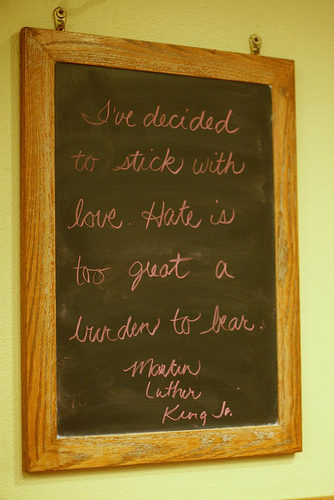 I've decided
to stick with
love. Hate is
too great a
burden to bear.
Martin
Luther
King Jr.